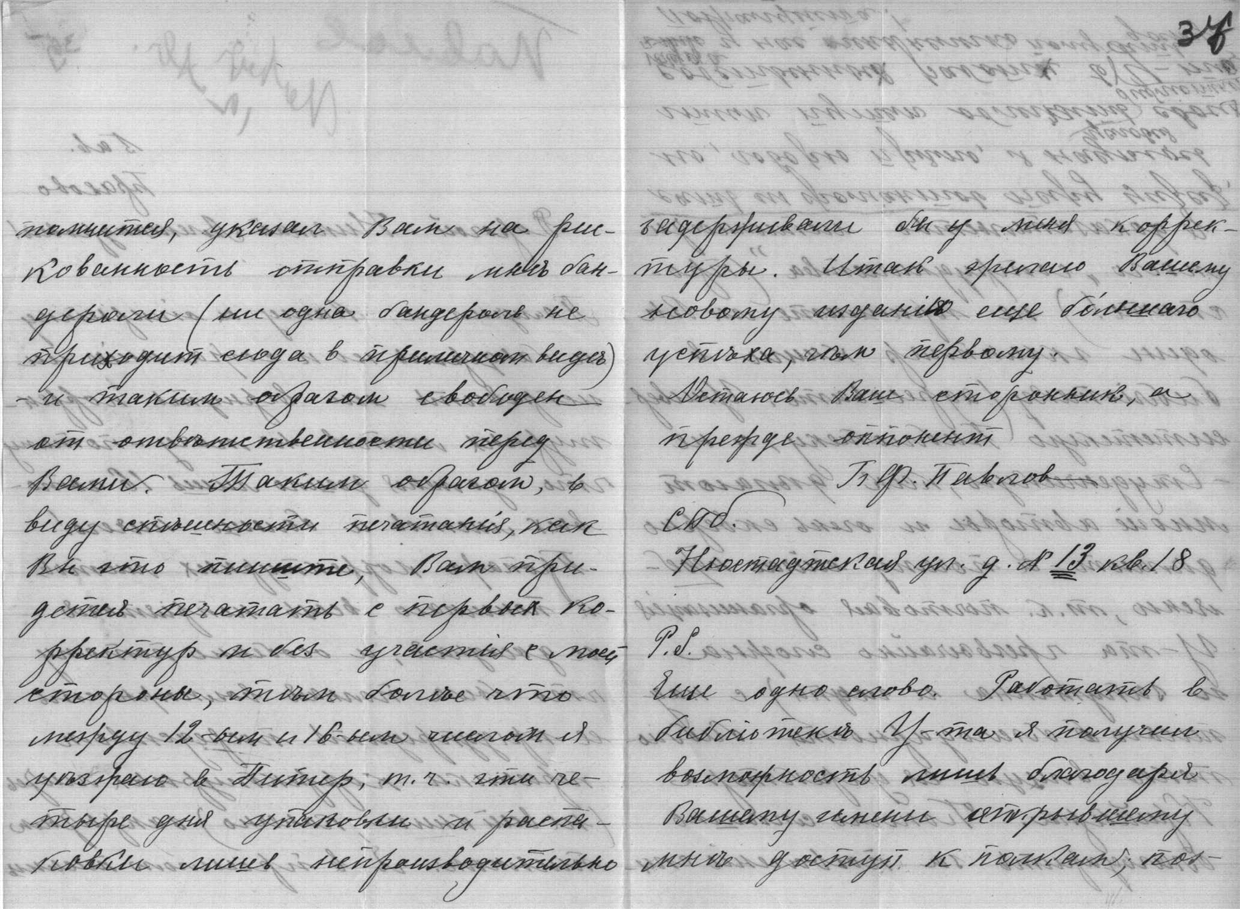 помнится, указал Вам на рис-
кованность отправки мнѣ бан-
дероли (ни одна бандероль не
приходит сюда в приличном видѣ)
- и таким образом свободен
от отвѣтственности перед
Вами. Таким образом, в
виду спѣшности печатанія, как
Вы это пишите, Вам при-
дется печатать с первых ко-
рректур и без участія с моей
стороны, тѣм болѣе что
между 12-ым и 16-ым числом я
уѣзжаю в Питер; т.ч. эти че-
тыре дня упаковки и распа-
ковки лишь непроизводительно
37
задерживали бы у меня коррек-
туры. Итак желаю Вашему
новому изданію еще бо́льшаго
успѣха, чѣм первому.
Остаюсь Ваш сторонник, а
прежде оппонент
Б.Ф. Павлов
СПб.
Нюстадтская ул. д. № 13 кв. 18
P.S.
Еще одно слово. Работать в
библіотекѣ У-та я получил
возможность лишь благодаря
Вашему имени открывшему
мнѣ доступ к полкам, поз-